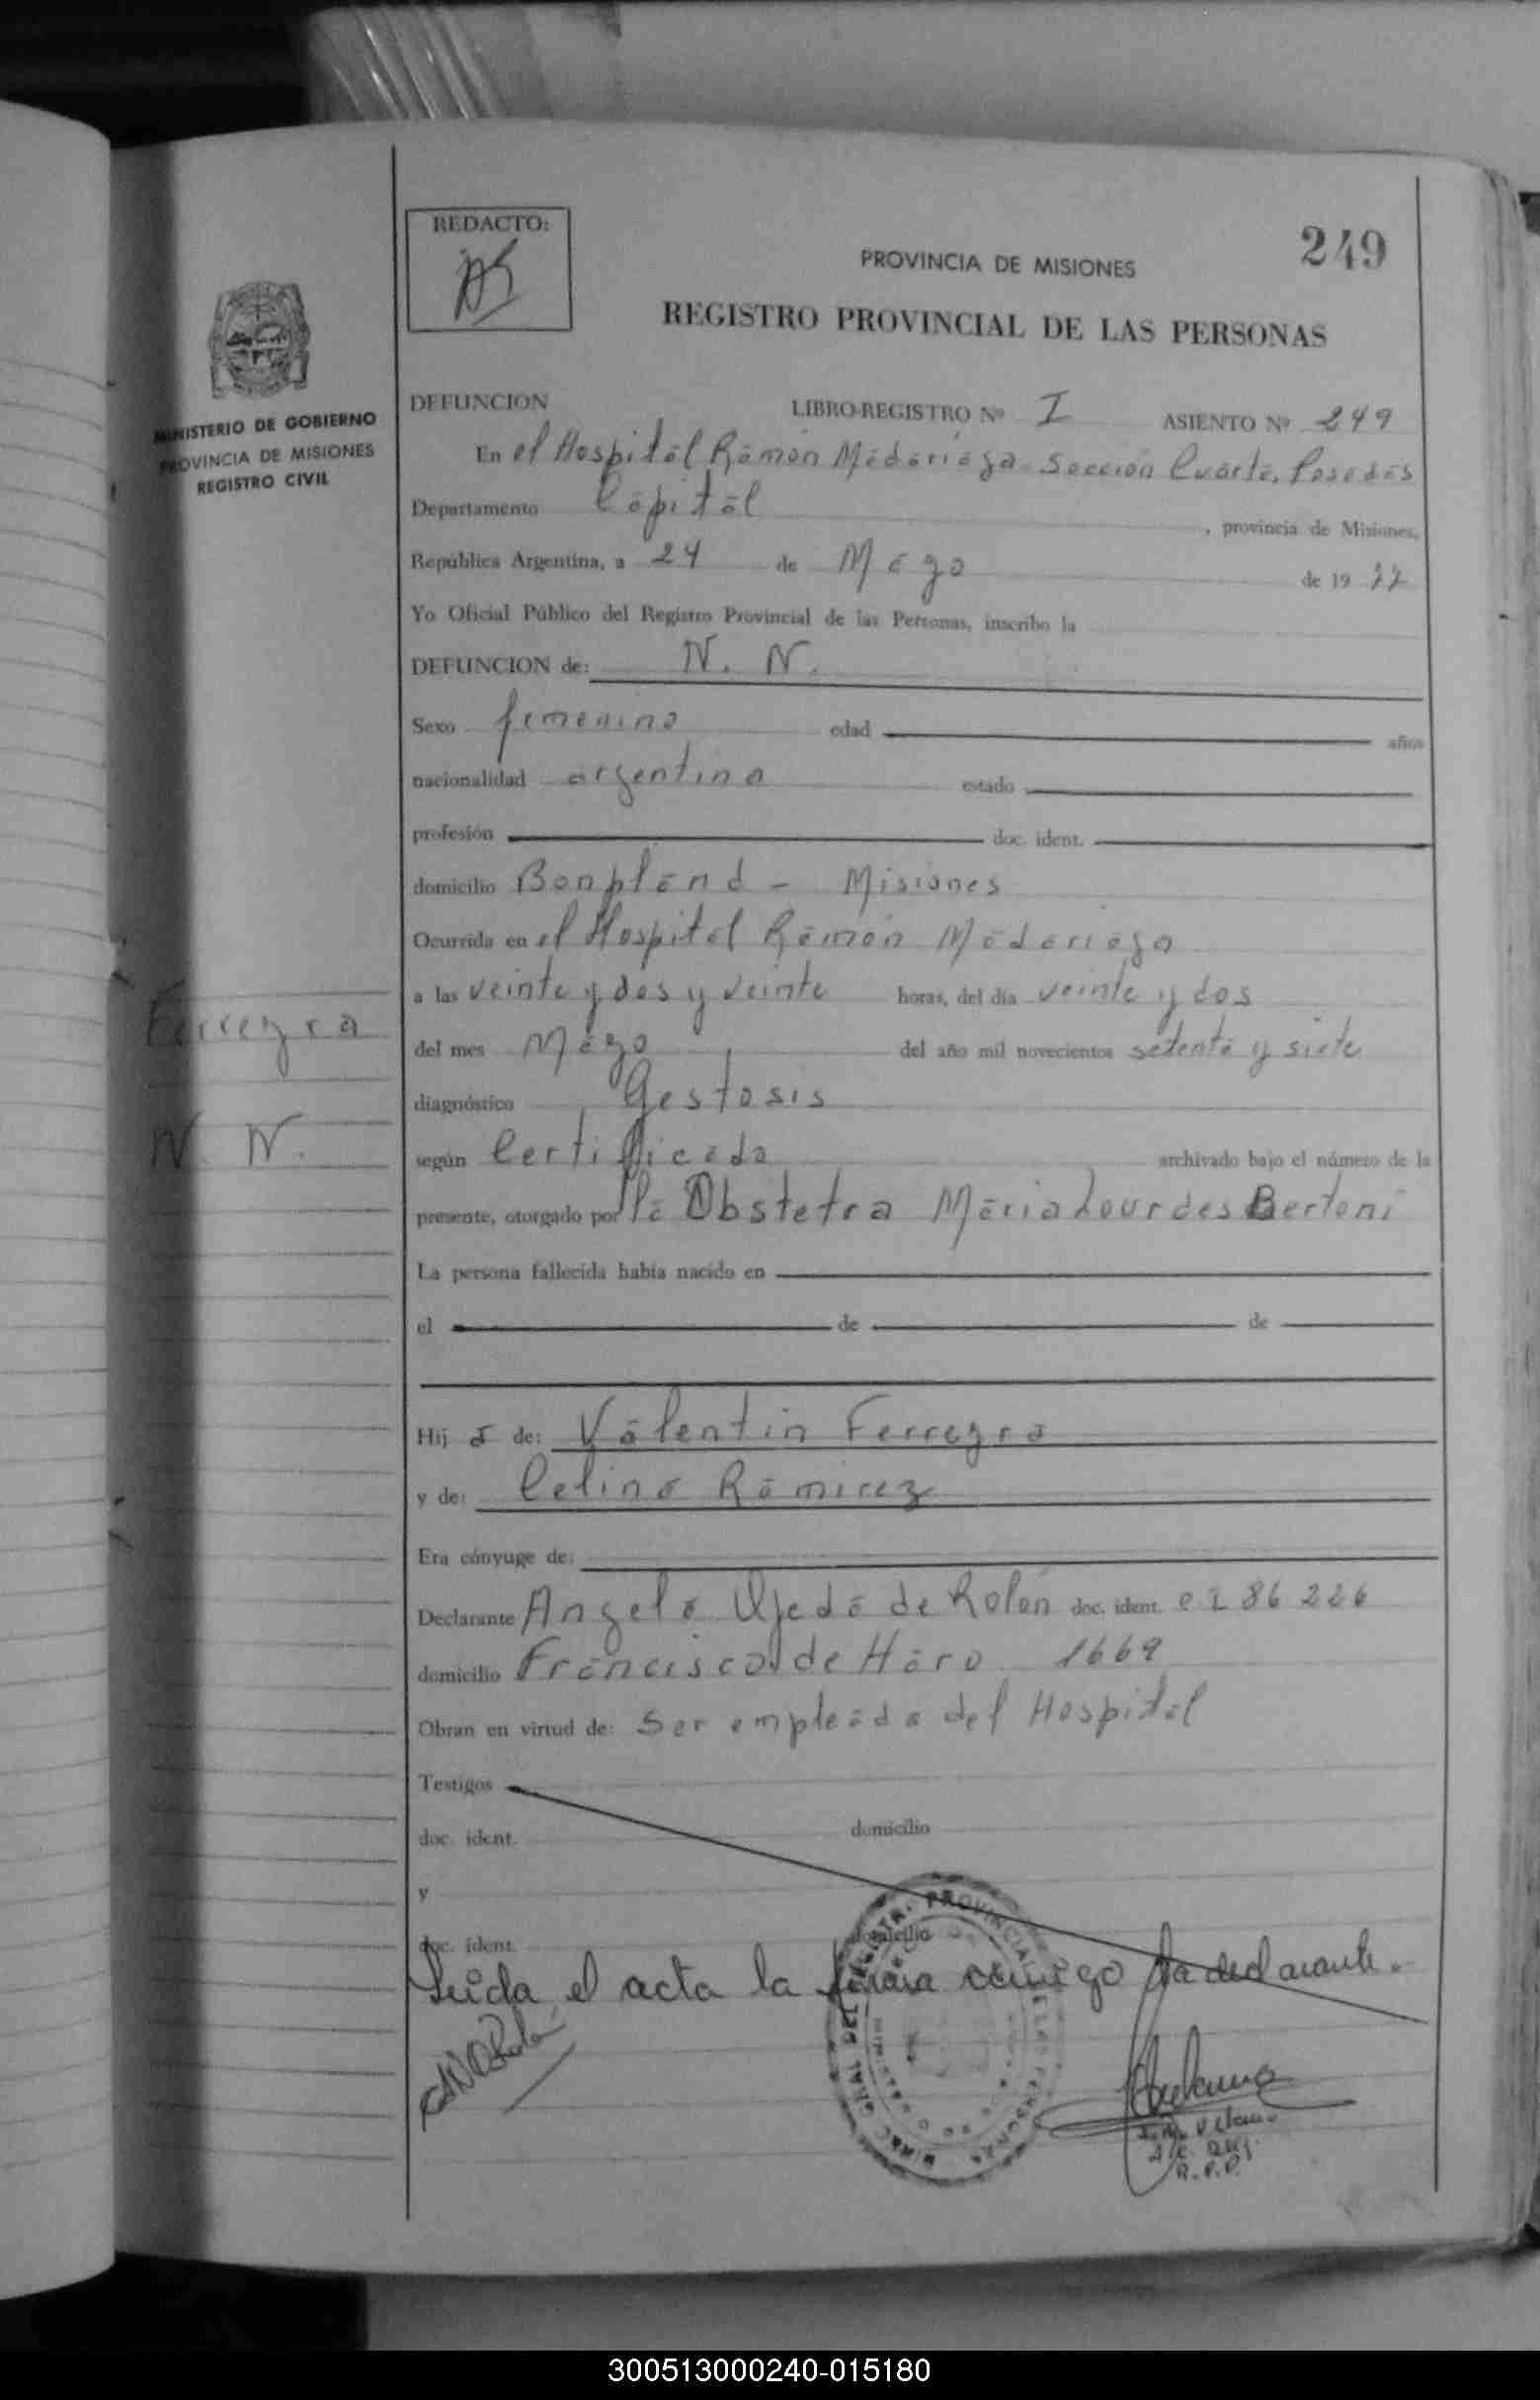 REDACTO:
249
PROVINCIA DE MISIONES
REGISTRO PROVINCIAL DE LAS PERSONAS
MINISTERIO DE GOBIERNO
PROVINCIA DE MISIONES
REGISTRO CIVIL
DEFUNCION LIBRO-REGISTRO Nº I ASIENTO Nº 249
En el Hospital Ramón Madariaga Sección Cuarta, Posadas
Departamento Capital, provincia de Misiones,
República Argentina, a 24 de Mayo de 1977
Yo Oficial Público del Registro Provincial de las Personas, inscribo la
DEFUNCION de: N. N.
Sexo femenino edad años
nacionalidad argentina estado
profesión doc. ident.
domicilio Bonpland - Misiones
Ocurrida en el Hospital Ramón Madariaga
a las veinte y dos y veinte horas, del día veinte y dos
del mes Mayo del año mil novecientos setenta y siete
Ferreyra
N. N.
diagnóstico Gestosis
según Certificado archivado bajo el número de la
presente, otorgado por la Obstetra María Lourdes Bertoni
La persona fallecida había nacido en
el de de
Hij a de: Valentin Ferreyra
y de: Celina Ramirez
Era cónyuge de:
Declarante Angela Ojeda de Rolón doc. ident.
domicilio Francisco de Haro 1669
Obran en virtud de: Ser empleada del Hospital
Testigos
doc. ident. domicilio
y
doc. ident. domicilio
Leida el acta la firma conmigo la declarante.
R.P.P.
300513000240-015180